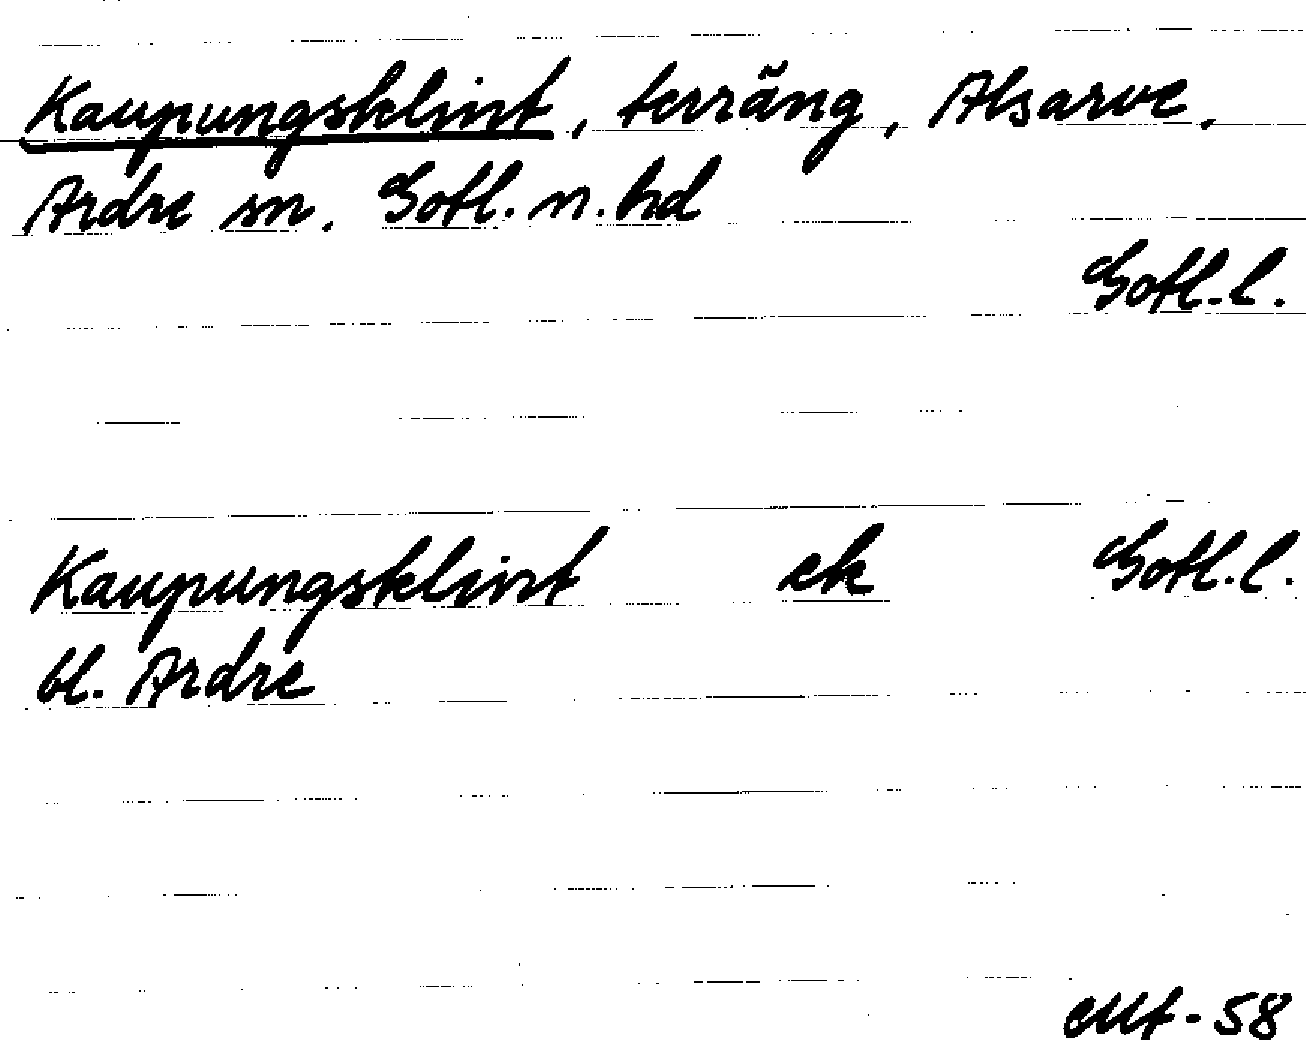 Kaupungsklint, terräng, Alsarve,
Ardre sn. Gotl. n. hd
Gotl. l.
Kaupungsklint ek Gotl. l.
bl. Ardre